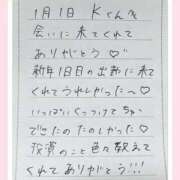 1月1日 Kくん♡
会いに来てくれて
ありがとう♡
新年1日目の出勤に来て
くれてうれしかった〜♡
いっぱいくっつけて
できたの たのしかった！
投資のこと色々教えて
くれてありがとう!!!